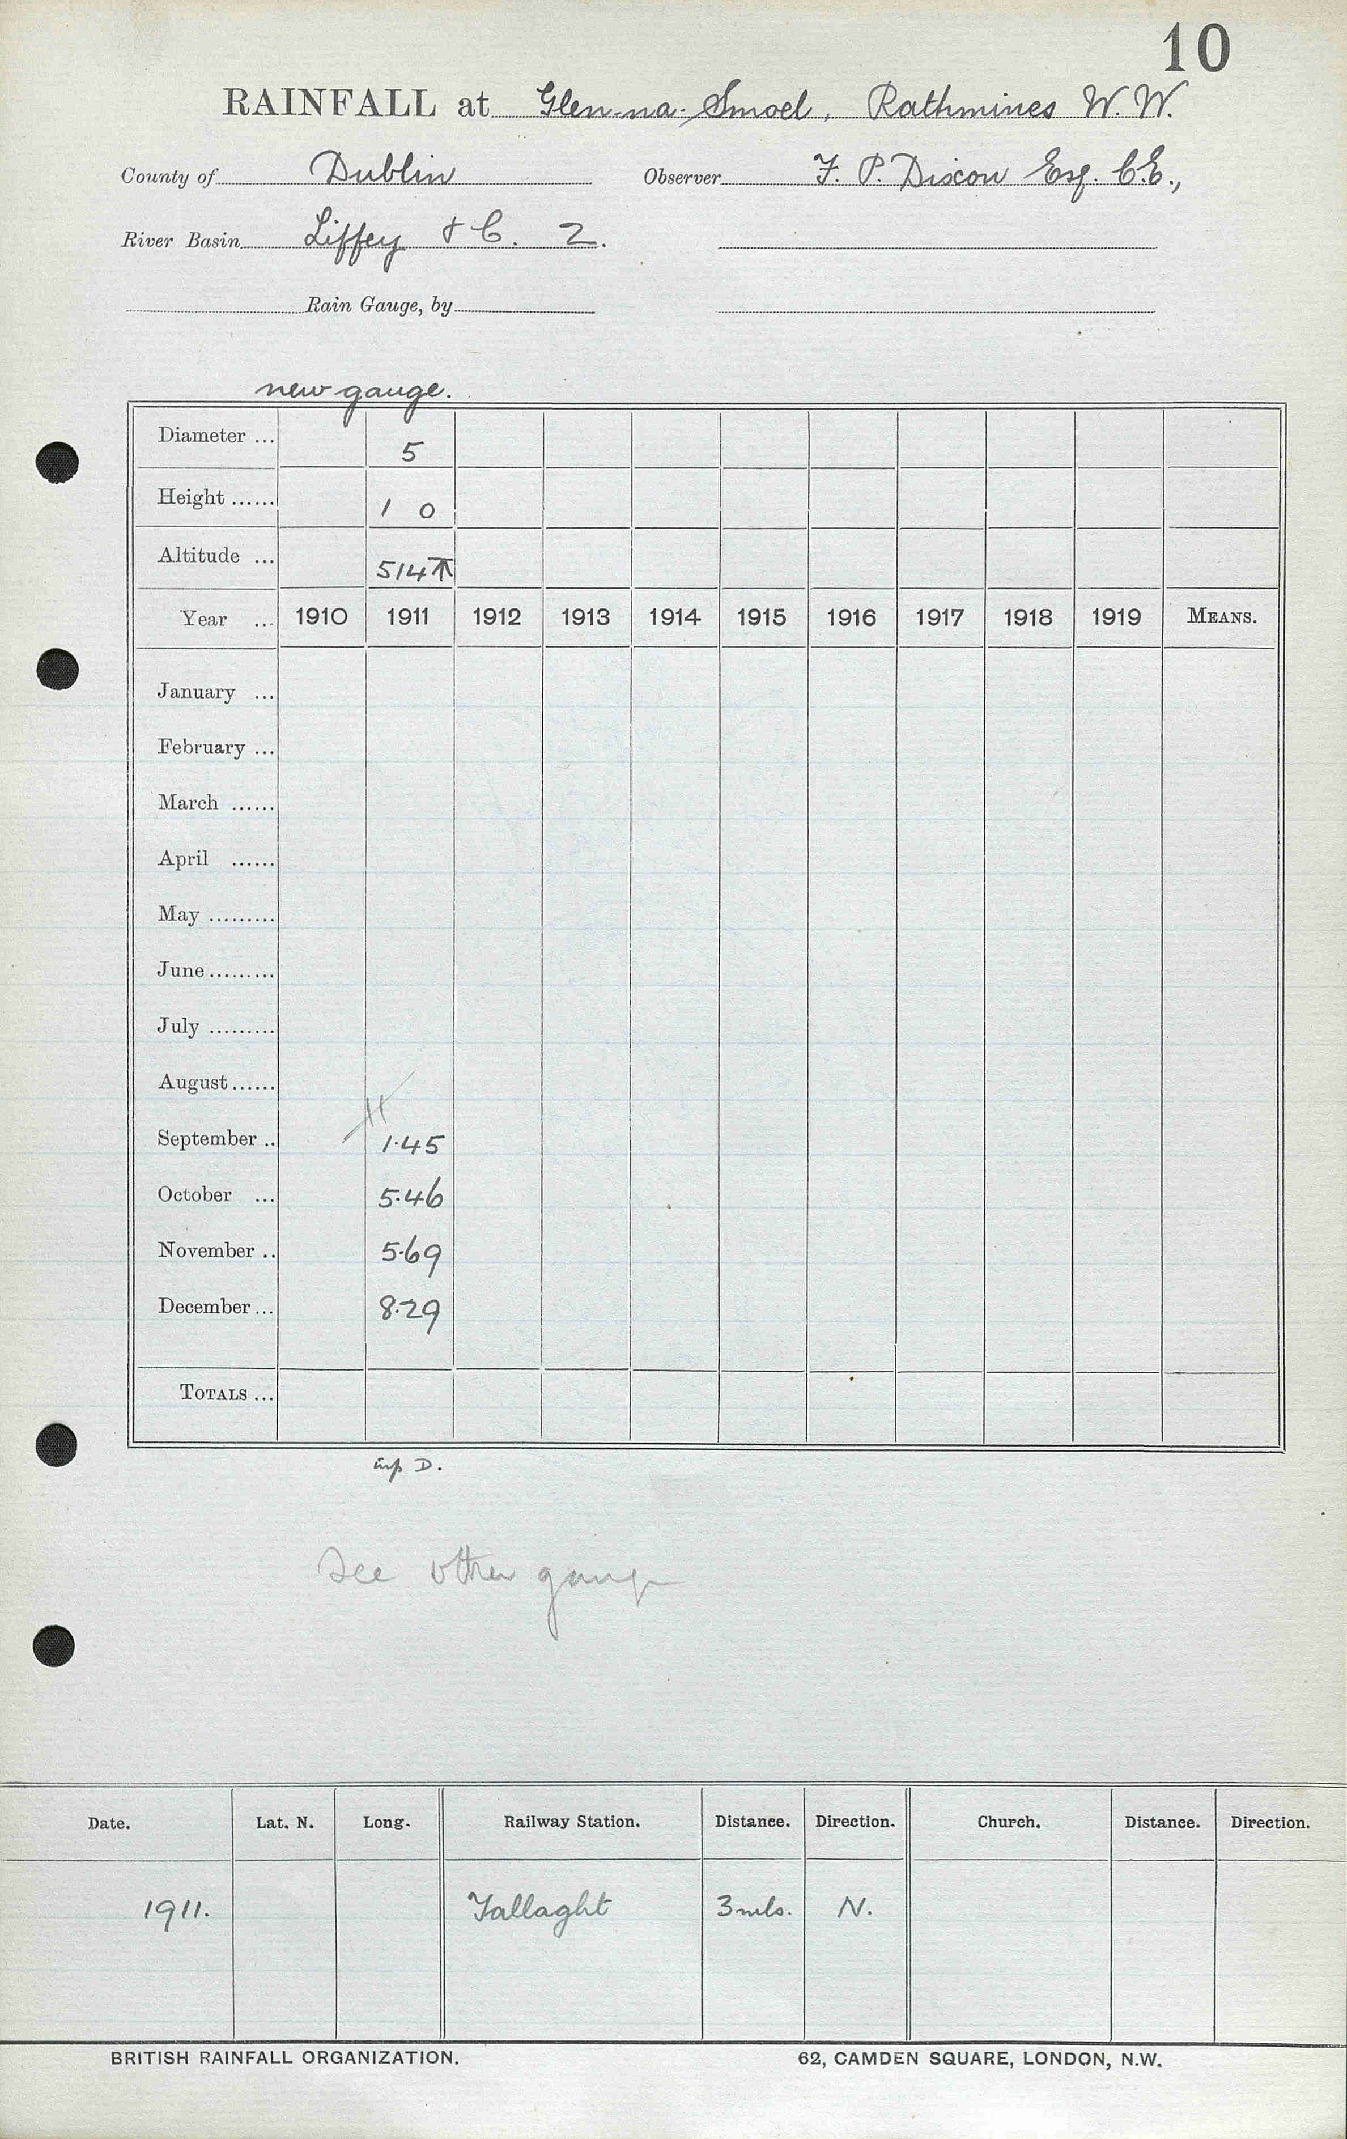 10
RAINFALL at Glen-na-Smoel, Rathmines W.W.
County of Dublin Observer F. P. Dixon Esq. C.E.,
River Basin Liffey & C. 2.
Rain Gauge, by
new gauge.
Diameter ... 5
Height ...... 1 0
Altitude ... 514
Year ... 1910 1911 1912 1913 1914 1915 1916 1917 1918 1919 MEANS.
January ...
February ...
March ......
April ......
May .........
June .........
July .........
August ......
September .. 1.45
October ... 5.46
November .. 5.69
December ... 8.29
TOTALS ...
D.
See other gauge
Date. Lat. N. Long. Railway Station. Distance. Direction. Church. Distance. Direction.
1911. Tallaght 3 mls. N.
BRITISH RAINFALL ORGANIZATION. 62, CAMDEN SQUARE, LONDON, N.W.